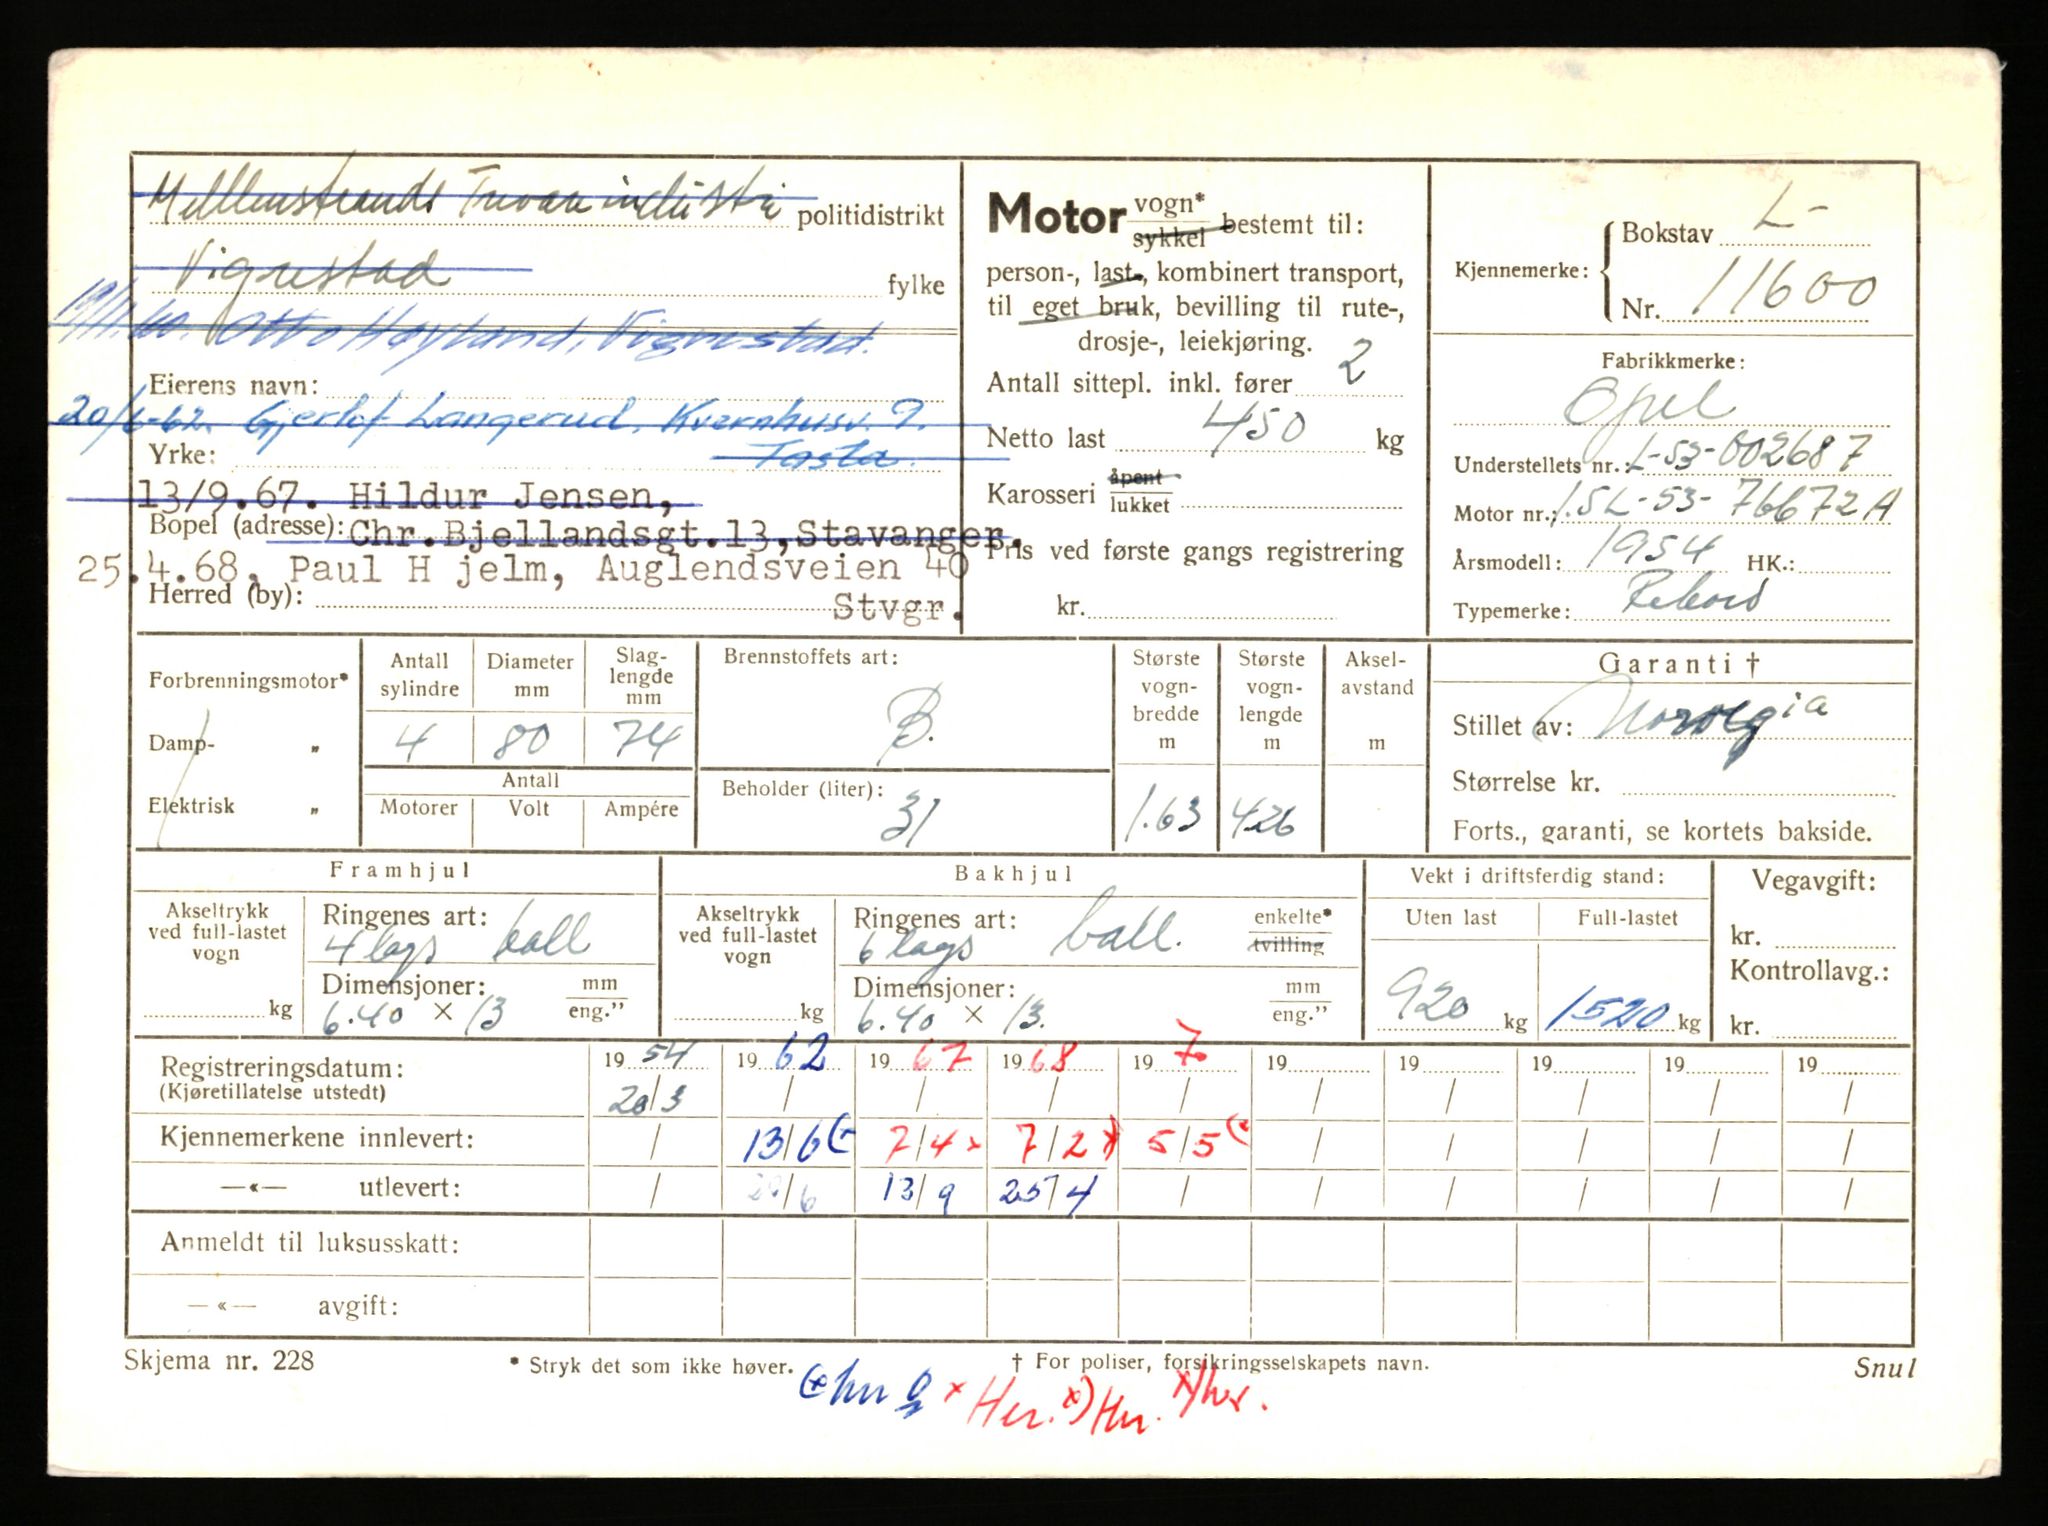 Mellemstrands Trevareindustri politidistrikt
Vigrestad fylke
19/11.60. Otto Høyland, Vigrestad.
Eierens navn:
20/6-62. Gjerlof Langerud, Kvernhusv. 9.
Yrke: Tasta.
13/9.67. Hildur Jensen,
Bopel (adresse): Chr.Bjellandsgt.13,Stavanger.
25.4.68. Paul H jelm, Auglendsveien 40
Herred (by): Stvgr.
Motor vogn* sykkel bestemt til:
person-, last-, kombinert transport,
til eget bruk, bevilling til rute-,
drosje-, leiekjøring.
Antall sittepl. inkl. fører 2
Netto last 450 kg
Karosseri åpent lukket
Pris ved første gangs registrering
kr.
Kjennemerke: { Bokstav L-
Nr. 11600
Fabrikkmerke:
Opel
Understellets nr.: L-53-002687
Motor nr.: 1.5L-53-76672A
Årsmodell: 1954 HK.:
Typemerke: Rekord
Forbrenningsmotor*
Damp- „
Elektrisk „
Antall sylindre
Diameter mm
Slag-lengde mm
4 80 74
Antall
Motorer Volt Ampére
Brennstoffets art:
B.
Beholder (liter):
31
Største vogn-bredde m
1.63
Største vogn-lengde m
426
Aksel-avstand m
Garanti †
Stillet av: Norvegia
Størrelse kr.
Forts., garanti, se kortets bakside.
Framhjul
Akseltrykk ved full-lastet vogn
kg
Ringenes art:
4 lags ball
Dimensjoner: mm eng.”
6.40 × 13
Bakhjul
Akseltrykk ved full-lastet vogn
kg
Ringenes art: enkelte* tvilling
6 lags ball.
Dimensjoner: mm eng.”
6.40 × 13.
Vekt i driftsferdig stand:
Uten last Full-lastet
920 kg 1520 kg
Vegavgift:
kr.
Kontrollavg.:
kr.
Registreringsdatum: 19 54 19 62 19 67 19 68 19 7 19 19 19 19 19
(Kjøretillatelse utstedt) 20/3 / / / / / / / / /
Kjennemerkene innlevert: / 13/6 (- 7/4 x 7/2 x) 5/5 (x / / / / /
—«— utlevert: / 20/6 13/9 25/4 / / / / / /
Anmeldt til luksusskatt:
—«— avgift:
Skjema nr. 228 * Stryk det som ikke høver. † For poliser, forsikringsselskapets navn. Snul
x Her. x) Her. x) her.